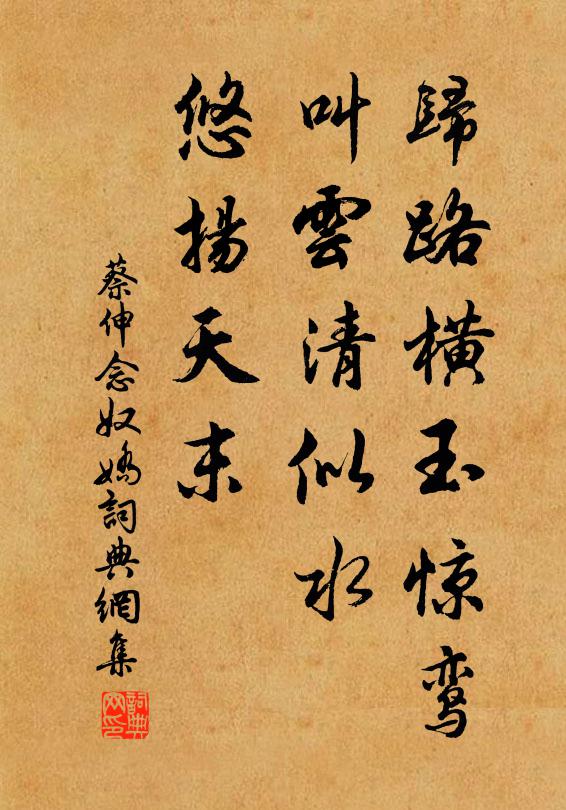 歸路橫玉惊鸾
叫雲清似水
悠揚天末
蔡伸念奴嬌詞典網集
詞典网印